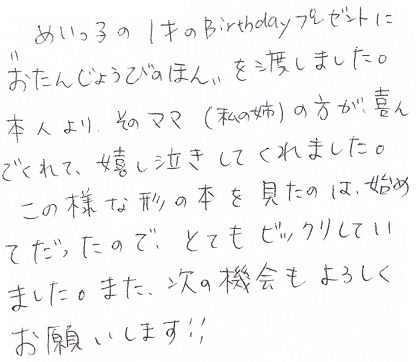 めいっ子の1才のBirthdayプレゼントに
"おたんじょうびのほん"を渡しました。
本人より、そのママ(私の姉)の方が、喜ん
でくれて、嬉し泣きしてくれました。
この様な形の本を見たのは、始め
てだったので、とてもビックリしてい
ました。また、次の機会もよろしく
お願いします!!